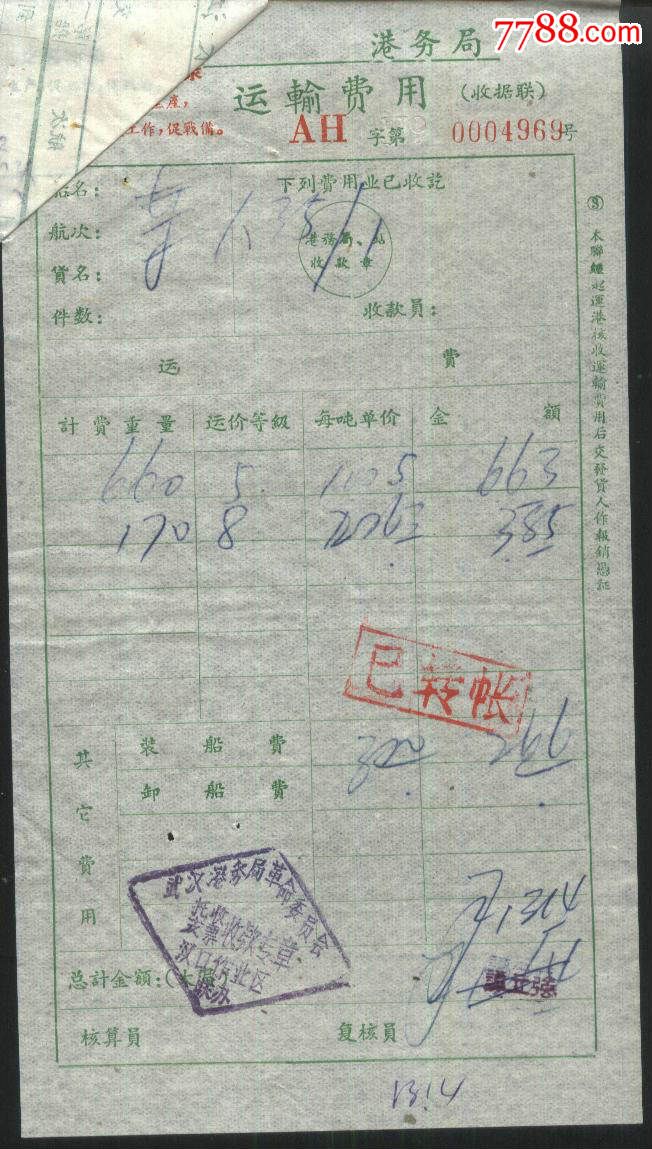 7788.com
中国收藏热线
港务局
运輸費用 (收据联)
工作,促戰備。
AH 字第 0004969号
船名:
下列費用业已收訖
航次:
港務局、站
收款章
貨名:
件数:
收款員:
③ 本聯經起運港核收運輸費用后交發貨人作報銷憑証
运 費
計費重量 运价等級 每吨单价 金額
660 5 1005 663
170 8 2263 385
已转帐
其它費用
装船費
卸船費
266
武汉港务局革命委员会
托收
发票收款专章
汉口作业区
1314
总計金額:(大写)
核算員
复核員
1314